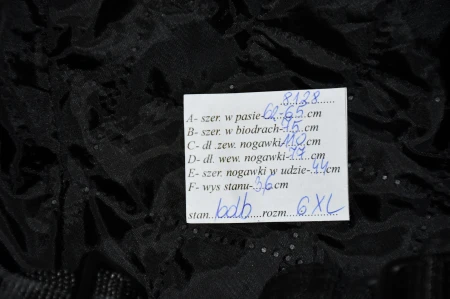 8128
A- szer. w pasie-62-65 cm
B- szer. w biodrach-75 cm
C- dł .zew. nogawki 110 cm
D- dł. wew. nogawki-77 cm
E- szer. nogawki w udzie-44 cm
F- wys stanu-36 cm
stan bdb rozm 6XL